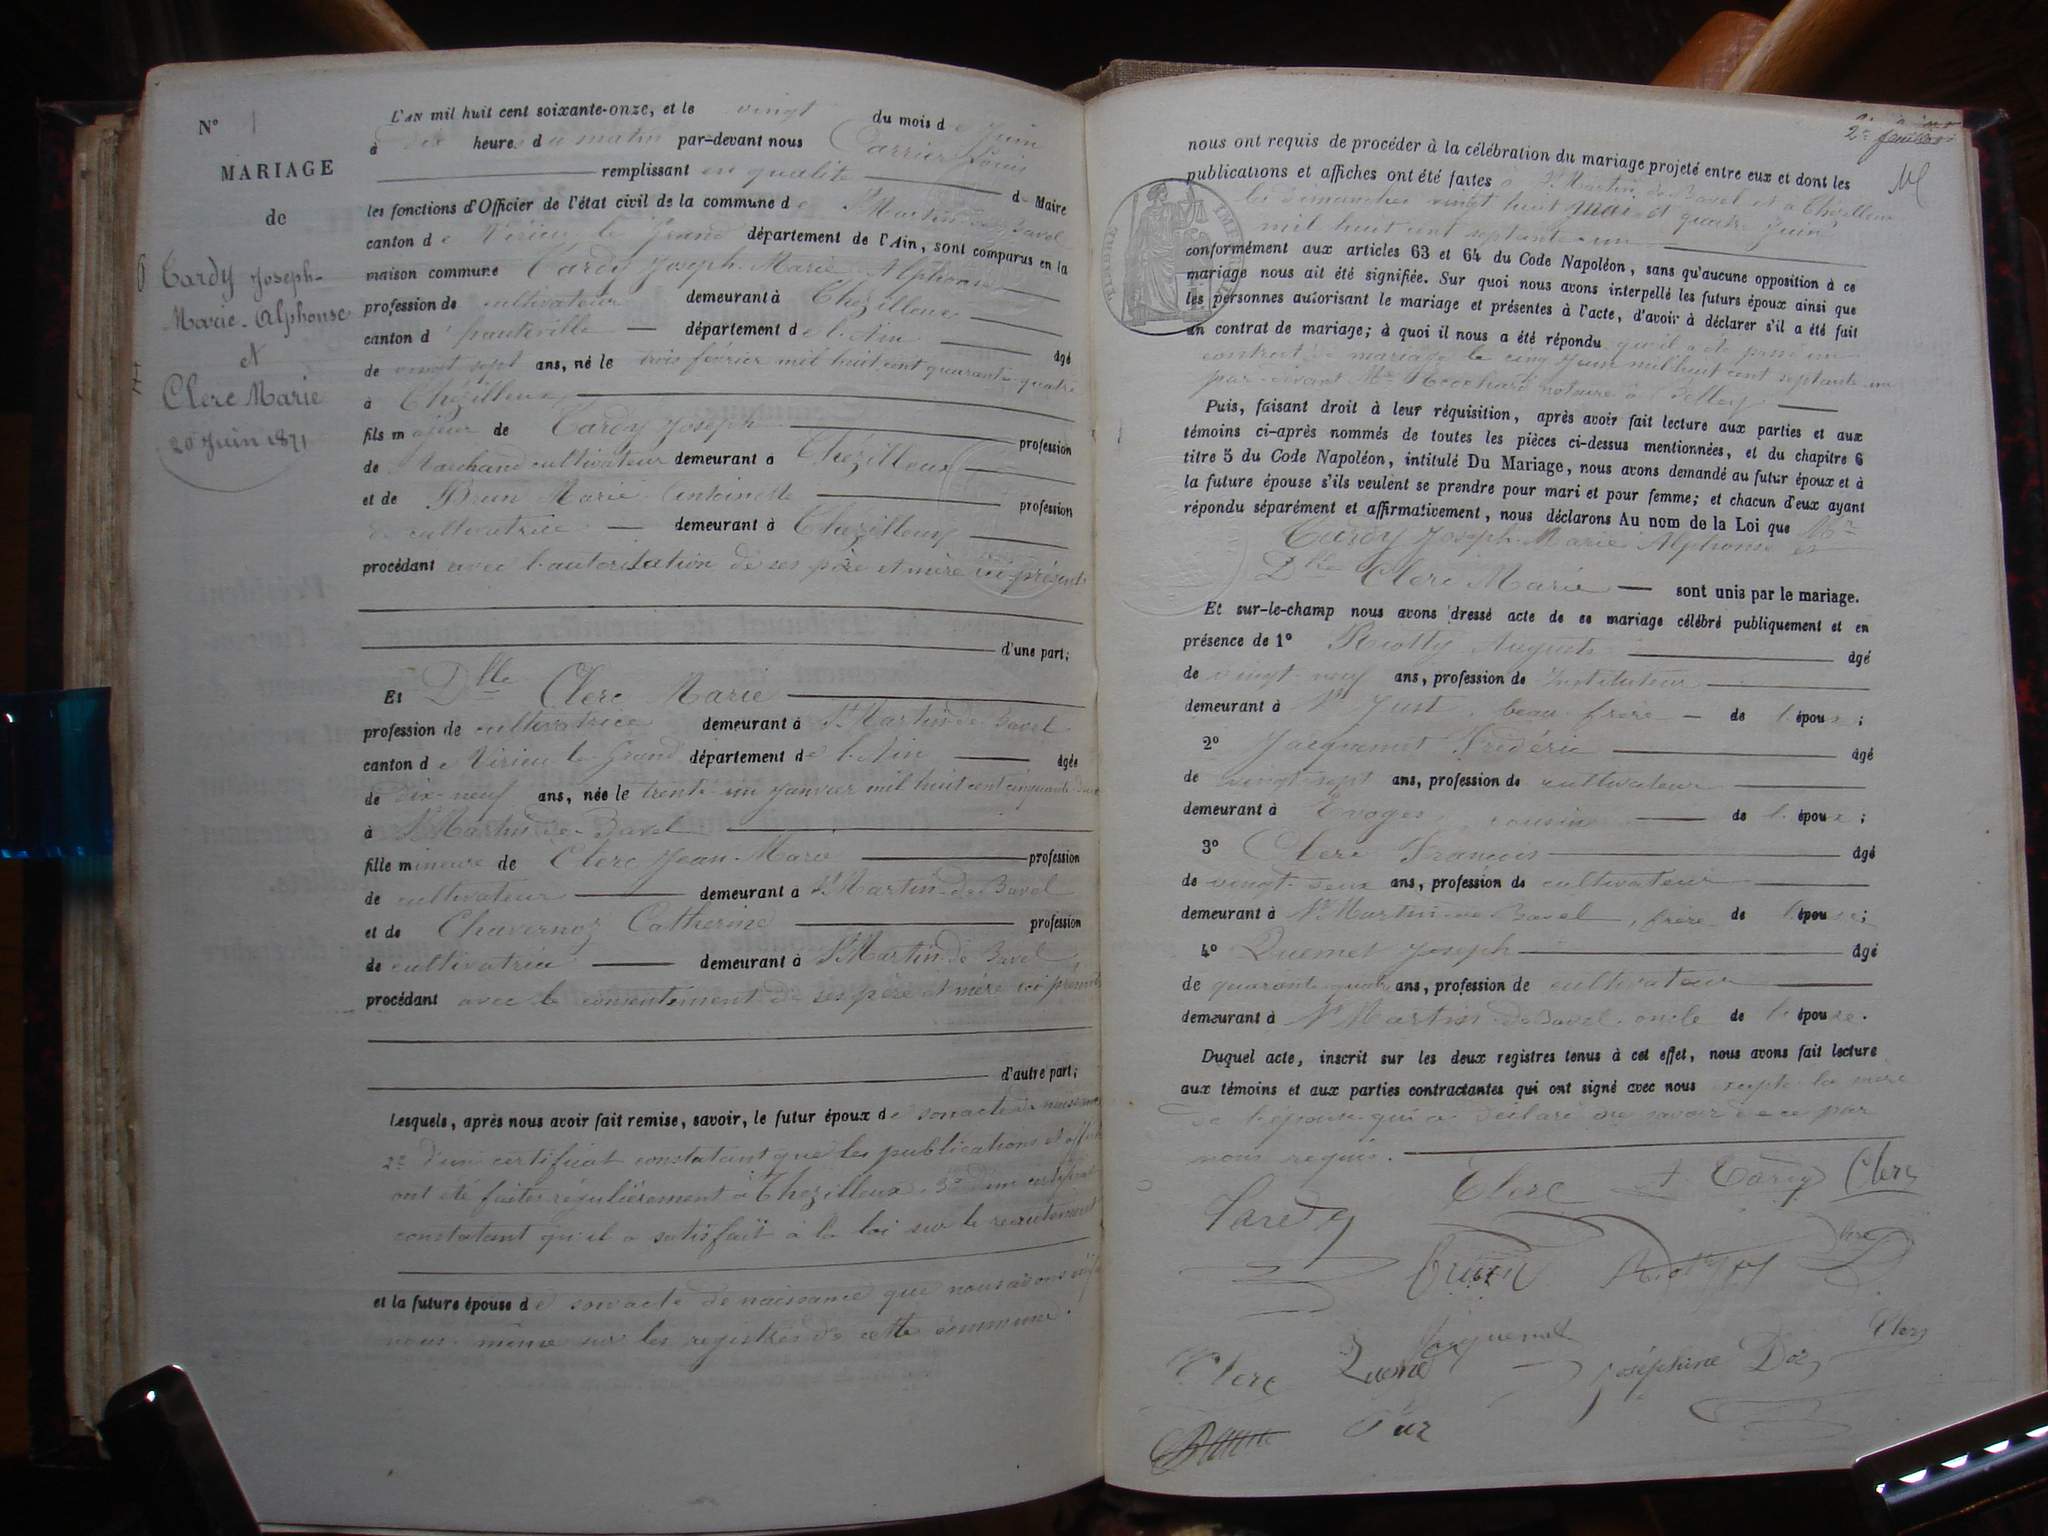 N° 1
MARIAGE
de
Tardy Joseph-
Marie-Alphonse
et
Clerc Marie
20 Juin 1871
L'AN mil huit cent soixante-onze, et le vingt du mois de Juin
à dix heures du matin par-devant nous Carrier Louis
remplissant en qualité de Maire
les fonctions d'Officier de l'état civil de la commune de St Martin de Bavel
canton de Virieu le Grand département de l'Ain, sont comparus en la
maison commune Tardy Joseph-Marie Alphonse
profession de cultivateur demeurant à Thézillieux
canton d'hauteville département de l'Ain âgé
de vingt sept ans, né le trois février mil huit cent quarante-quatre
à Thézillieux
fils majeur de Tardy Joseph profession
de Marchand cultivateur demeurant à Thézillieux
et de Brun Marie Antoinette profession
de cultivatrice demeurant à Thézillieux
procédant avec l'autorisation de ses père et mère ici présents
d'une part;
Et Dlle Clerc Marie
profession de cultivatrice demeurant à St Martin-de-Bavel
canton de Virieu le Grand département de l'Ain âgée
de dix-neuf ans, née le trente-un janvier mil huit cent cinquante deux
à St Martin-de-Bavel
fille mineure de Clerc Jean-Marie profession
de cultivateur demeurant à St Martin-de-Bavel
et de Chavernoz Catherine profession
de cultivatrice demeurant à St Martin-de Bavel
procédant avec le consentement de ses père et mère ici présents
d'autre part;
Lesquels, après nous avoir fait remise, savoir, le futur époux de son acte de naissance
2° d'un certificat constatant que les publications et affiches
ont été faites régulièrement à Thézillieux 3° d'un certificat
constatant qu'il a satisfait à la loi sur le recrutement
et la future épouse de son acte de naissance que nous avons
nous-même sur les registres de cette commune.
2e feuille
nous ont requis de procéder à la célébration du mariage projeté entre eux et dont les
publications et affiches ont été faites à St Martin de Bavel et à Thézillieux
les dimanches vingt huit mai et quatre Juin
mil huit cent septante-un
conformément aux articles 63 et 64 du Code Napoléon, sans qu'aucune opposition à ce
mariage nous ait été signifiée. Sur quoi nous avons interpellé les futurs époux ainsi que
les personnes autorisant le mariage et présentes à l'acte, d'avoir à déclarer s'il a été fait
un contrat de mariage; à quoi il nous a été répondu qu'il a été passé un
contrat de mariage le cinq Juin mil huit cent septante-un
par-devant Me notaire à Belley
Puis, faisant droit à leur réquisition, après avoir fait lecture aux parties et aux
témoins ci-après nommés de toutes les pièces ci-dessus mentionnées, et du chapitre 6
titre 5 du Code Napoléon, intitulé Du Mariage, nous avons demandé au futur époux et à
la future épouse s'ils veulent se prendre pour mari et pour femme; et chacun d'eux ayant
répondu séparément et affirmativement, nous déclarons Au nom de la Loi que Mr
Tardy Joseph-Marie Alphonse et
Dlle Clerc Marie sont unis par le mariage.
Et sur-le-champ nous avons dressé acte de ce mariage célébré publiquement et en
présence de 1° Riotty Auguste âgé
de vingt-neuf ans, profession de Instituteur
demeurant à St Just, beau-frère de l'époux;
2° Jacquemet Frédéric âgé
de vingt-sept ans, profession de cultivateur
demeurant à Evoges, cousin de l'époux;
3° Clerc François âgé
de vingt-deux ans, profession de cultivateur
demeurant à St Martin-de Bavel, frère de l'épouse;
4° Quemet Joseph âgé
de quarante quatre ans, profession de cultivateur
demeurant à St Martin de Bavel oncle de l'épouse.
Duquel acte, inscrit sur les deux registres tenus à cet effet, nous avons fait lecture
aux témoins et aux parties contractantes qui ont signé avec nous excepté la mère
de l'épouse qui a déclaré ne savoir de ce par
nous requis.
Clerc A. Tardy Clerc
Tardy
Brun Riotty
Jacquemet Clerc
Clerc Quemet Joséphine